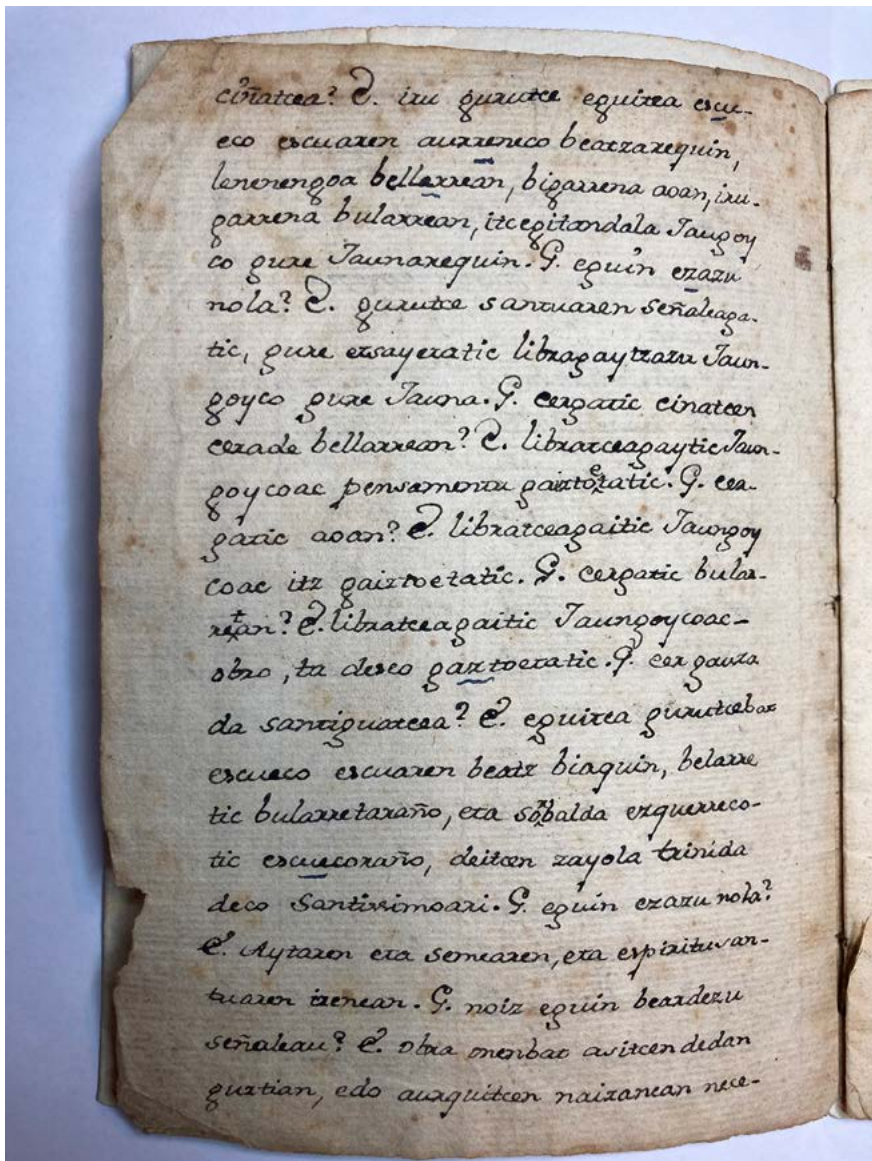 ciñatcea? E. iru gurutce eguitea escu-
eco escuaren aurreneco beatzarequin,
lenenengoa bellarrean, bigarrena aoan, iru-
garrena bularrean, itcegitandala Jaungoy
co gure Jaunarequin. G. eguin ezazu
nola? E. gurutce santuaren señaleaga-
tic, gure etsayetatic libragaytzazu Jaun-
goyco gure Jauna. G. cergatic cinatcen
cerade bellarrean? E. libratceagaytic Jaun-
goycoac pensamentu gaiztoetatic. G. cer-
gatic aoan? E. libratceagaitic Jaungoy
coac itz gaiztoetatic. G. cergatic bular-
rean? E. libratceagaitic Jaungoycoac-
obro, ta deseo gaztoetatic. G. cer gauza
da santiguatcea? E. eguitea gurutcebat
escueco escuaren beatz biaquin, belarre
tic bularretaraño, eta sorbalda ezquerreco-
tic escuecoraño, deitcen zayola trinida
deco Santissimoari. G. eguin ezazu nola?
E. Aytaren eta semearen, eta espiritusan-
tuaren izenean. G. noiz eguin beardezu
señaleau? E. obra onenbat asitcen dedan
guztian, edo aurquitcen naizanean nece-